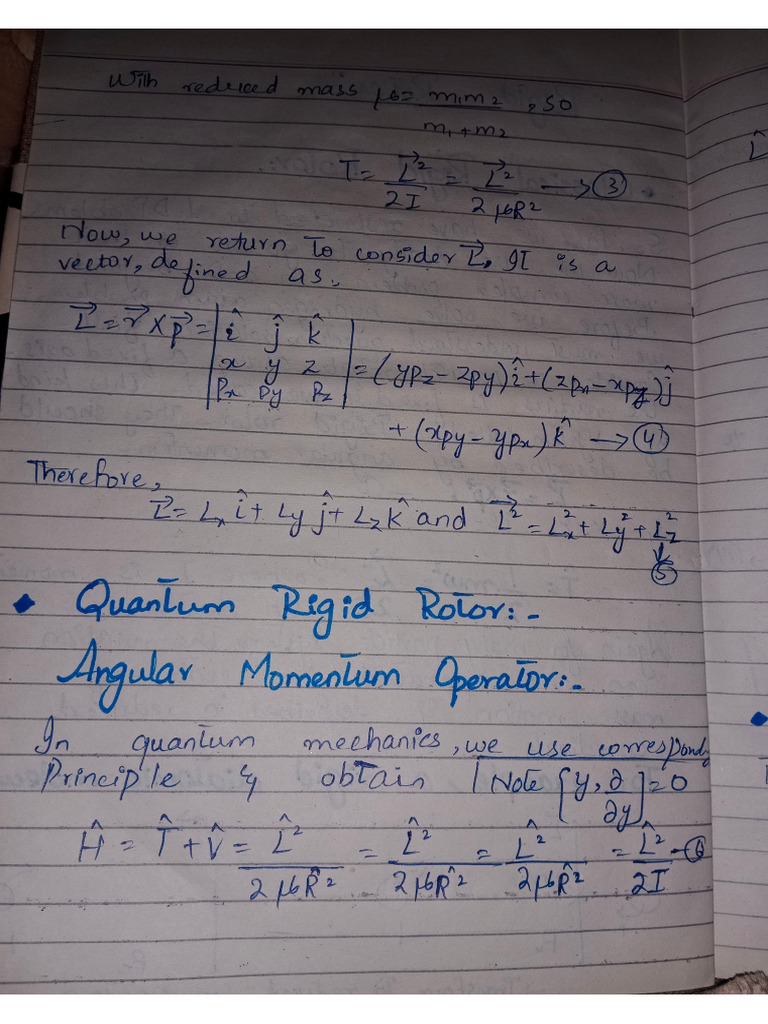 With reduced mass μ = m₁m₂ / m₁+m₂ , so
T = L⃗² / 2I = L⃗² / 2μR² → ③
Now, we return to consider L⃗. It is a
vector, defined as.
L⃗ = r⃗ × p⃗ = | î ĵ k̂ |
| x y z | = (ypz − zpy) î + (zpx − xpz) ĵ
| Px Py Pz |
+ (xpy − ypx) k̂ → ④
Therefore,
L⃗ = Lx î + Ly ĵ + Lz k̂ and L⃗² = Lx² + Ly² + Lz²
↓
⑤
• Quantum Rigid Rotor:-
Angular Momentum Operator:-
In quantum mechanics, we use correspondy
Principle & obtain Note [y, ∂/∂y] = 0
Ĥ = T̂ + V̂ = L̂² / 2μR̂² = L̂² / 2μR̂² = L̂² / 2μR̂² = L̂² / 2I → ⑥